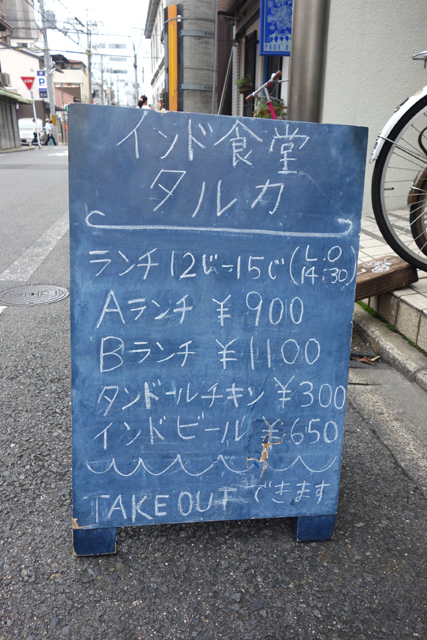 インド食堂
タルカ
ランチ 12じ〜15じ(L.O 14:30)
Aランチ ¥900
Bランチ ¥1100
タンドールチキン ¥300
インドビール ¥650
TAKE OUT できます